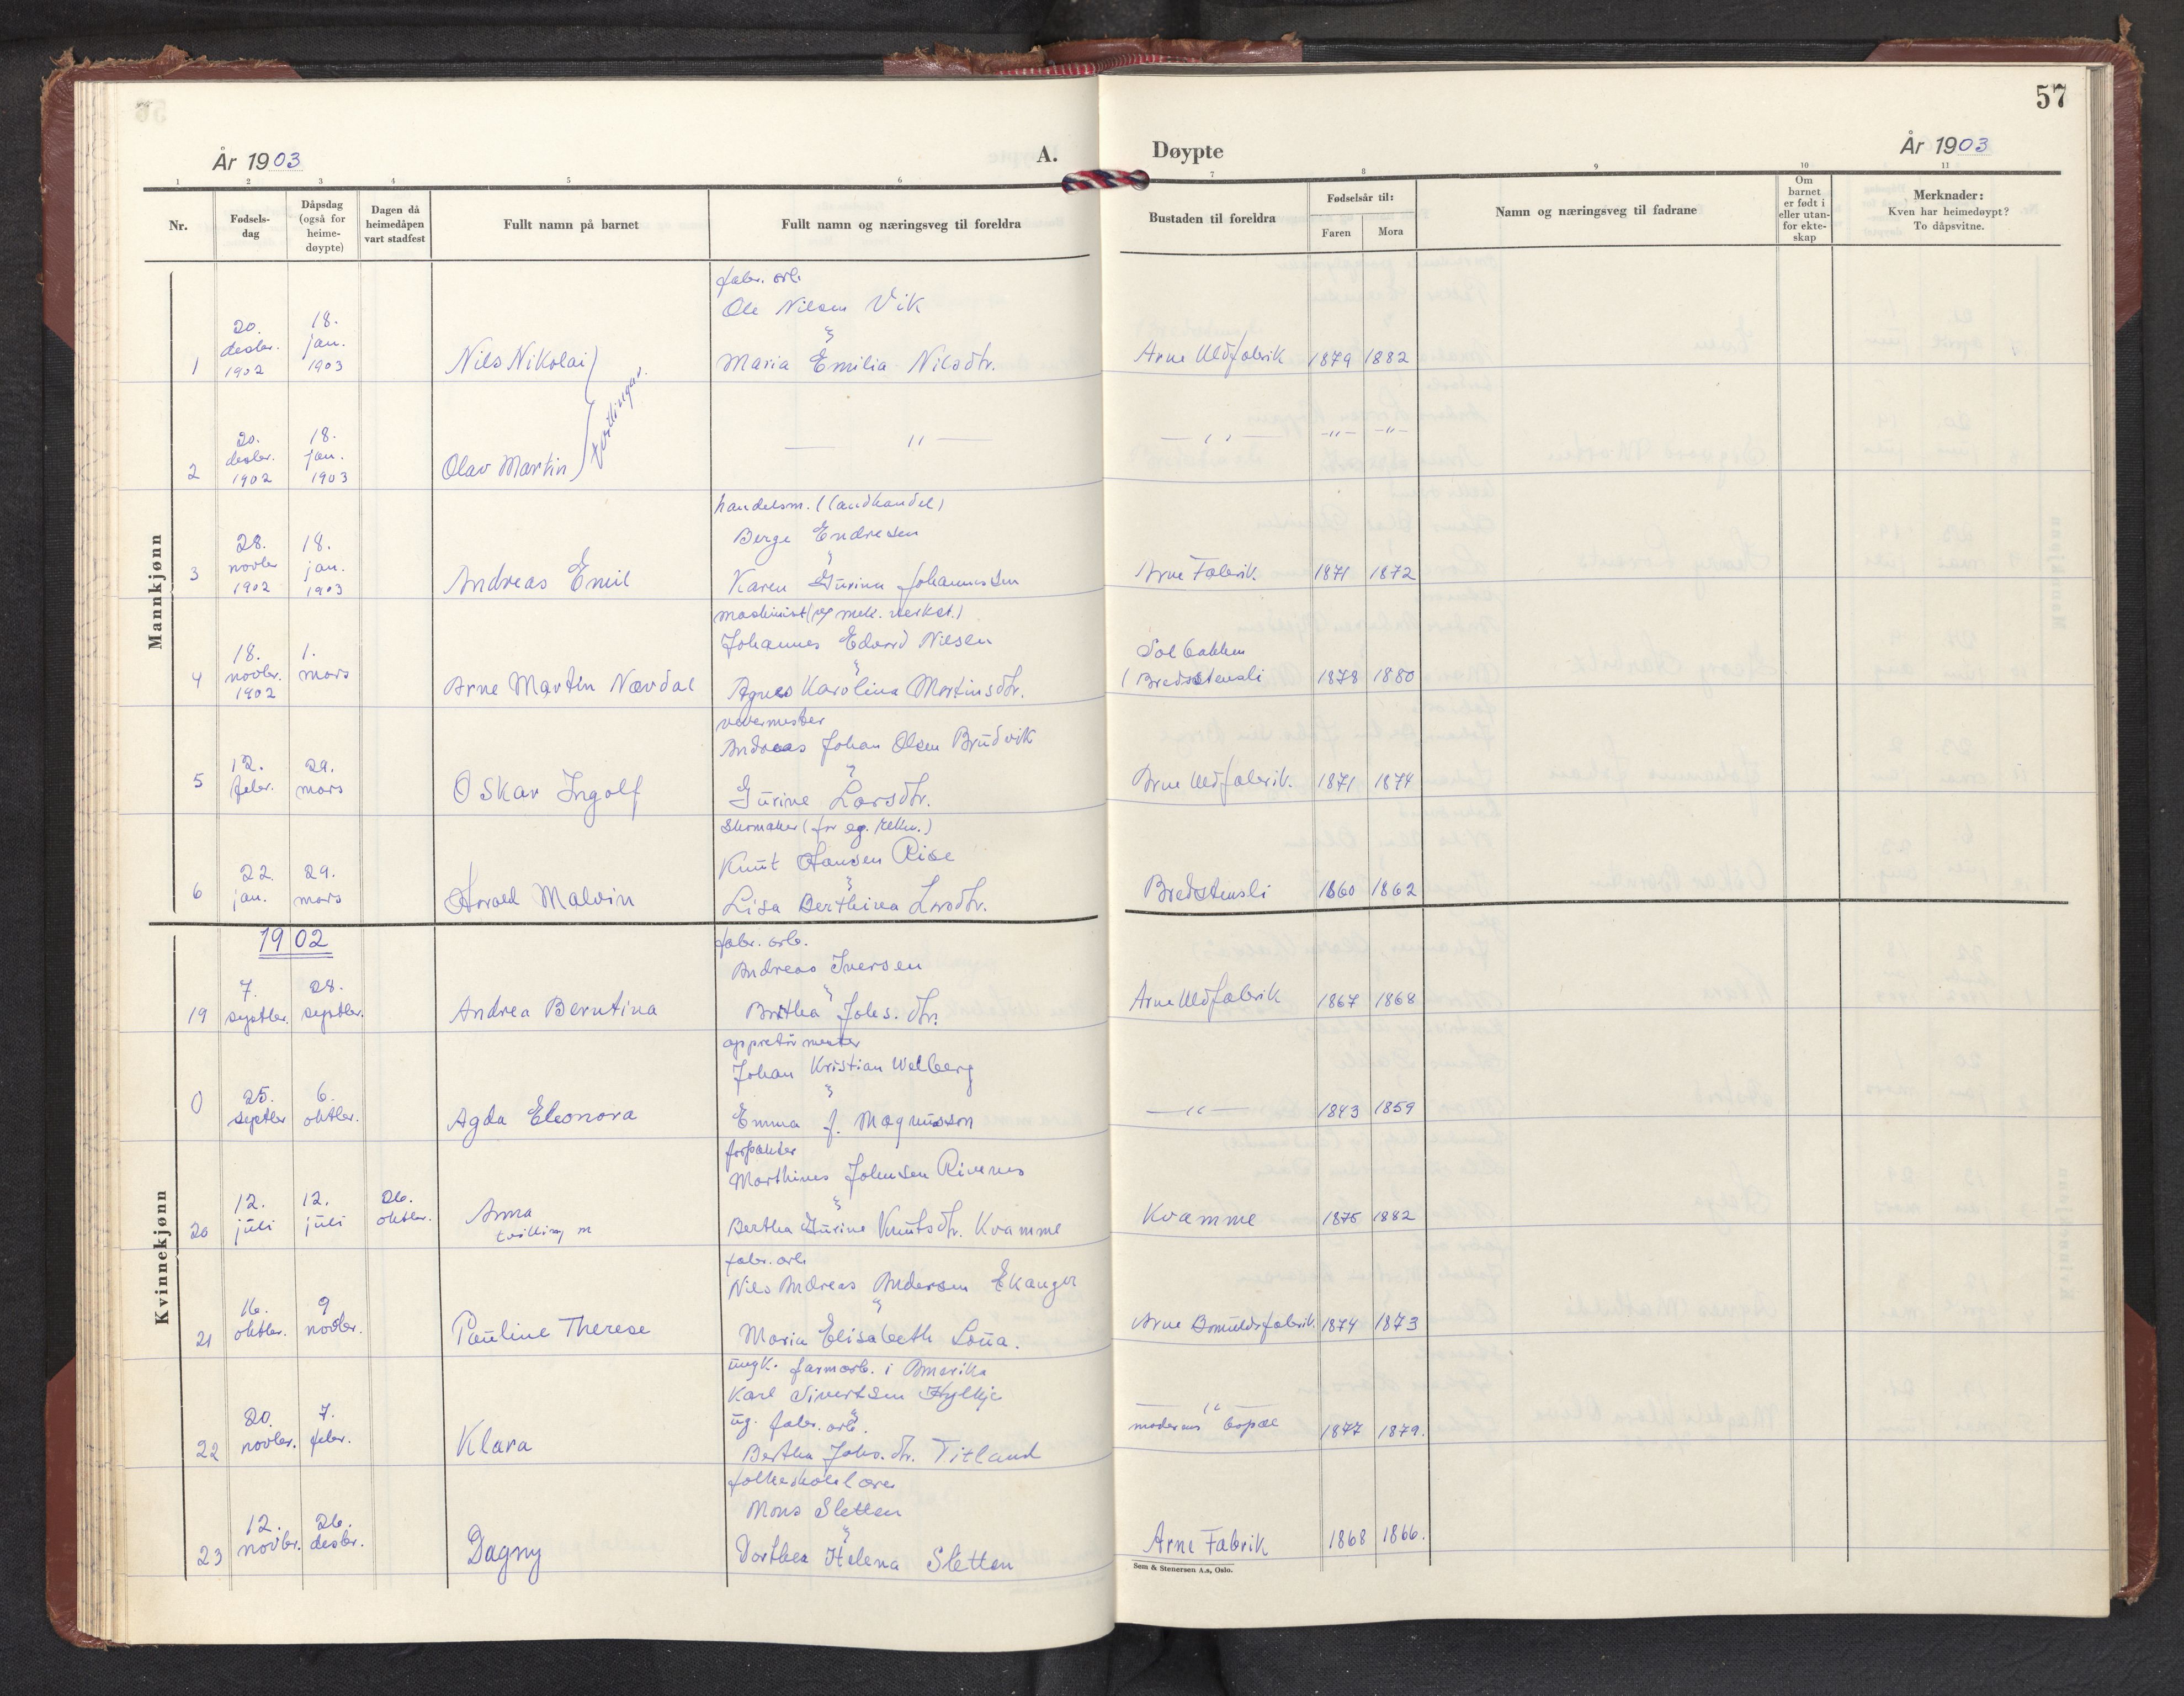 57
År 1903
A.
Døypte
År 1903
1 2 3 4 5 6 7 8 9 10 11
Nr.
Fødsels-
dag
Dåpsdag
(også for
heime-
døypte)
Dagen då
heimedåpen
vart stadfest
Fullt namn på barnet
Fullt namn og næringsveg til foreldra
Bustaden til foreldra
Fødselsår til:
Faren Mora
Namn og næringsveg til fadrane
Om
barnet
er født i
eller utan-
for ekte-
skap
Merknader:
Kven har heimedøypt?
To dåpsvitne.
Mannkjønn
fabr. arb.
Ole Nilsen Vik
"
1 20. desbr. 1902 18. jan. 1903 Nils Nikolai Maria Emilia Nilsdtr. Arne Uldfabrik 1879 1882
tvillingar.
2 20. desbr. 1902 18. jan. 1903 Olav Martin — " — — " — -"- -"-
handelsm. (landhandel)
Berge Endresen
"
3 28. novbr 1902 18. jan. 1903 Andreas Emil Karen Gurina Johannessen Arne Fabrik 1871 1872
maskinist ( mek. verkst.)
Johannes Edvard Nilsen
"
4 18. novbr. 1902 1. mars Arne Martin Navdal Agnes Karolina Martinsdtr. Solbakken (Bredstensli 1878 1880
vevermester
Andreas Johan Olsen Brudvik
"
5 12. febr. 29. mars Oskar Ingolf Gurine Larsdtr. Arne Uldfabrik. 1871 1874
skomaker (for eg. rekn.)
Knut Hansen Rise
"
6 22. jan. 29. mars Harald Malvin Lisa Berthina Larsdtr. Bredstensli 1860 1862
Kvinnekjønn
1902
fabr. arb.
Andreas Iversen
"
19 7. septbr. 28. septbr. Andrea Berntina Britha Johs. dtr. Arne Uldfabrik 1867 1868
appretør mester
Johan Kristian Welberg
"
0 25. septbr 6. oktbr. Agda Eleonora Emma J. Magnusson — " — 1843 1859
forpakter
Marthines Johnsen Rivenes
"
20 12. juli 12. juli 26. oktbr. Anna Bertha Gurine Knutsdtr. Kvamme Kvamme 1875 1882
tvilling m
fabr. arb
Nils Andreas Andersen Ekanger
"
21 16. oktbr. 9 novbr. Pauline Therese Maria Elisabeth Loua. Arne Bomuldsfabrik 1874 1873
ungk. farmarb. i Amerika
Karl Sivertsen Hylkje
ug. fabr. arb.
22 20. novbr. 7. febr. Klara Bertha Johs. dtr. Titland — " — moderens bopæl 1877 1879.
folkeskolelærer
Mons Sletten
"
23 12. novbr. 26. desbr. Dagny Dorthea Helena Sletten Arne Fabrik 1868 1866.
Sem & Stenersen A.s, Oslo.